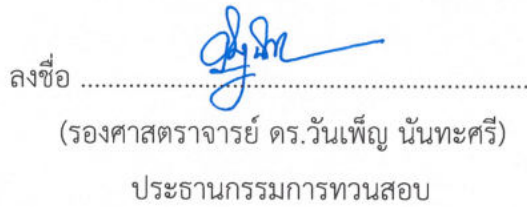 ลงชื่อ ........................................................
(รองศาสตราจารย์ ดร.วันเพ็ญ นันทะศรี)
ประธานกรรมการทวนสอบ